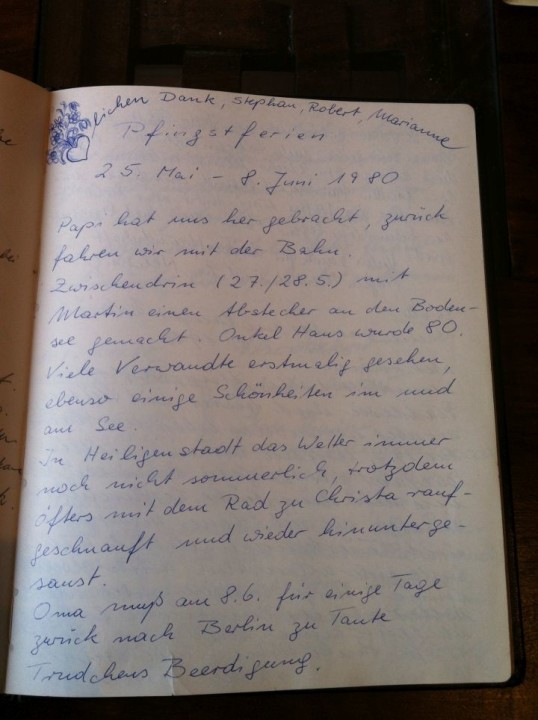 lichen Dank, Stephan, Robert, Marianne
Pfingstferien
25. Mai - 8. Juni 1980
Papi hat uns her gebracht, zurück
fahren wir mit der Bahn.
Zwischendrin (27./28.5.) mit
Martin einen Abstecher an den Boden-
see gemacht. Onkel Hans wurde 80.
Viele Verwandte erstmalig gesehen,
ebenso einige Schönheiten im und
am See.
In Heiligenstadt das Wetter immer
noch nicht sommerlich, trotzdem
öfters mit dem Rad zu Christa rauf-
geschnauft und wieder hinunterge-
saust.
Oma muß am 8.6. für einige Tage
zurück nach Berlin zu Tante
Trudchens Beerdigung.